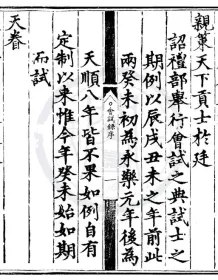 親策天下貢士於廷
詔禮部舉行會試之典試士之
期例以辰戌丑未之年前此
兩癸未初為永樂元年後為
會試錄序
天順八年皆不果如例自有
定制以來惟今年癸未始如期
而試
天眷